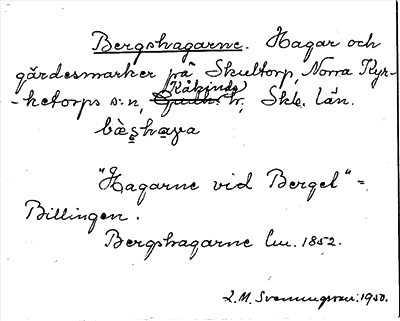 Bergshagarne. Hagar och
gärdesmarker på Skultorp, Norra Kyr-
-ketorps s:n, Kåkinds hr, Skbg. län.
"Hagarne vid Berget" =
Billingen.
Bergshagarne lm. 1852.
1950.